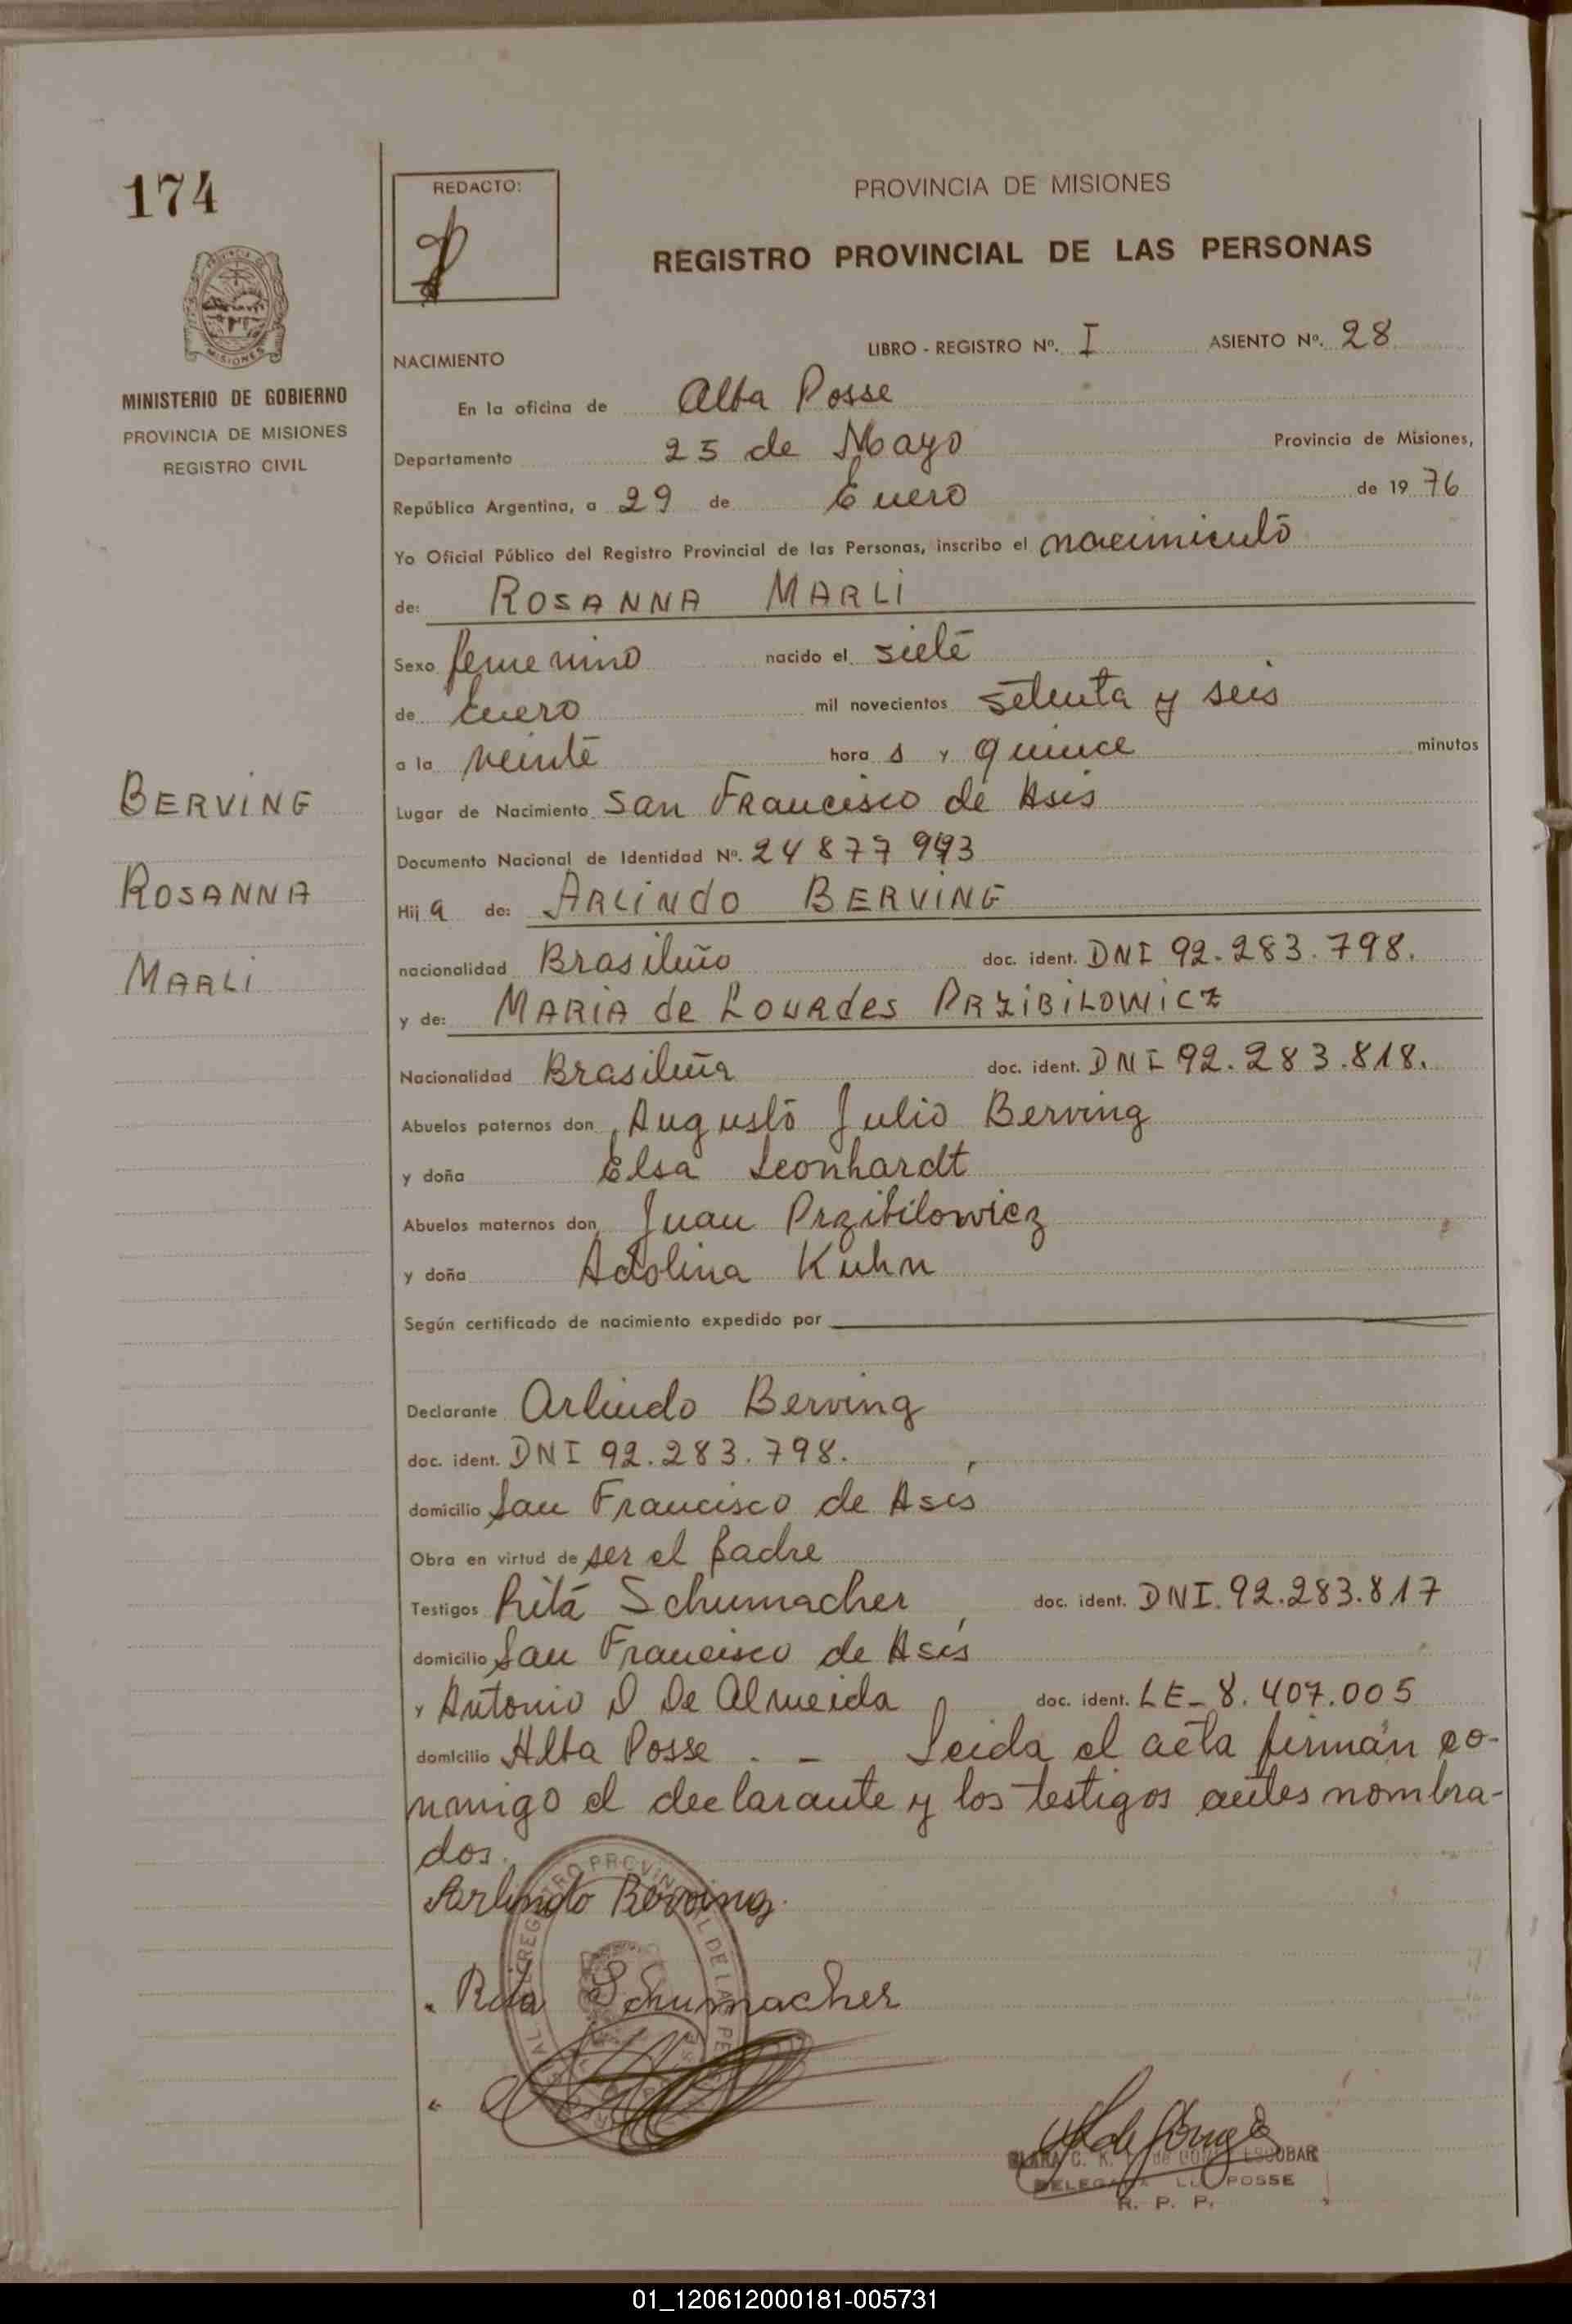 174
REDACTO:
PROVINCIA DE MISIONES
REGISTRO PROVINCIAL DE LAS PERSONAS
MISIONES
MINISTERIO DE GOBIERNO
PROVINCIA DE MISIONES
REGISTRO CIVIL
NACIMIENTO
LIBRO - REGISTRO Nº. I ASIENTO Nº. 28
En la oficina de Alba Posse
Departamento 25 de Mayo Provincia de Misiones,
República Argentina, a 29 de Enero de 1976
Yo Oficial Público del Registro Provincial de las Personas, inscribo el nacimiento
de: ROSANNA MARLI
Sexo femenino nacido el siete
de Enero mil novecientos setenta y seis
a la veinte hora s y quince minutos
BERVING
ROSANNA
MARLI
Lugar de Nacimiento San Francisco de Asis
Documento Nacional de Identidad Nº. 24 877
Hij a de: ARLINDO BERVING
nacionalidad Brasileño doc. ident. DNI 92.283.798.
y de: MARIA de LOURdes PRZIBILOWICZ
Nacionalidad Brasileña doc. ident. DNI 92.283.818.
Abuelos paternos don Augusto Julio Berving
y doña Elsa Leonhardt
Abuelos maternos don Juan Przibilowicz
y doña Adolina Kuhn
Según certificado de nacimiento expedido por
Declarante Arlindo Berving
doc. ident. DNI 92.283.798.
domicilio San Francisco de Asís
Obra en virtud de ser el padre
Testigos Rita Schumacher doc. ident. DNI. 92.283.817
domicilio San Francisco de Asís
y Antonio D De Almeida doc. ident. LE- 8.407.005
domicilio Alba Posse . - Leida el acta firman co-
nmigo el declarante y los testigos antes nombra-
dos.
Arlindo Berving
Rita Schumacher
ESCOBAR
POSSE
R. P. P.
01_120612000181-005731